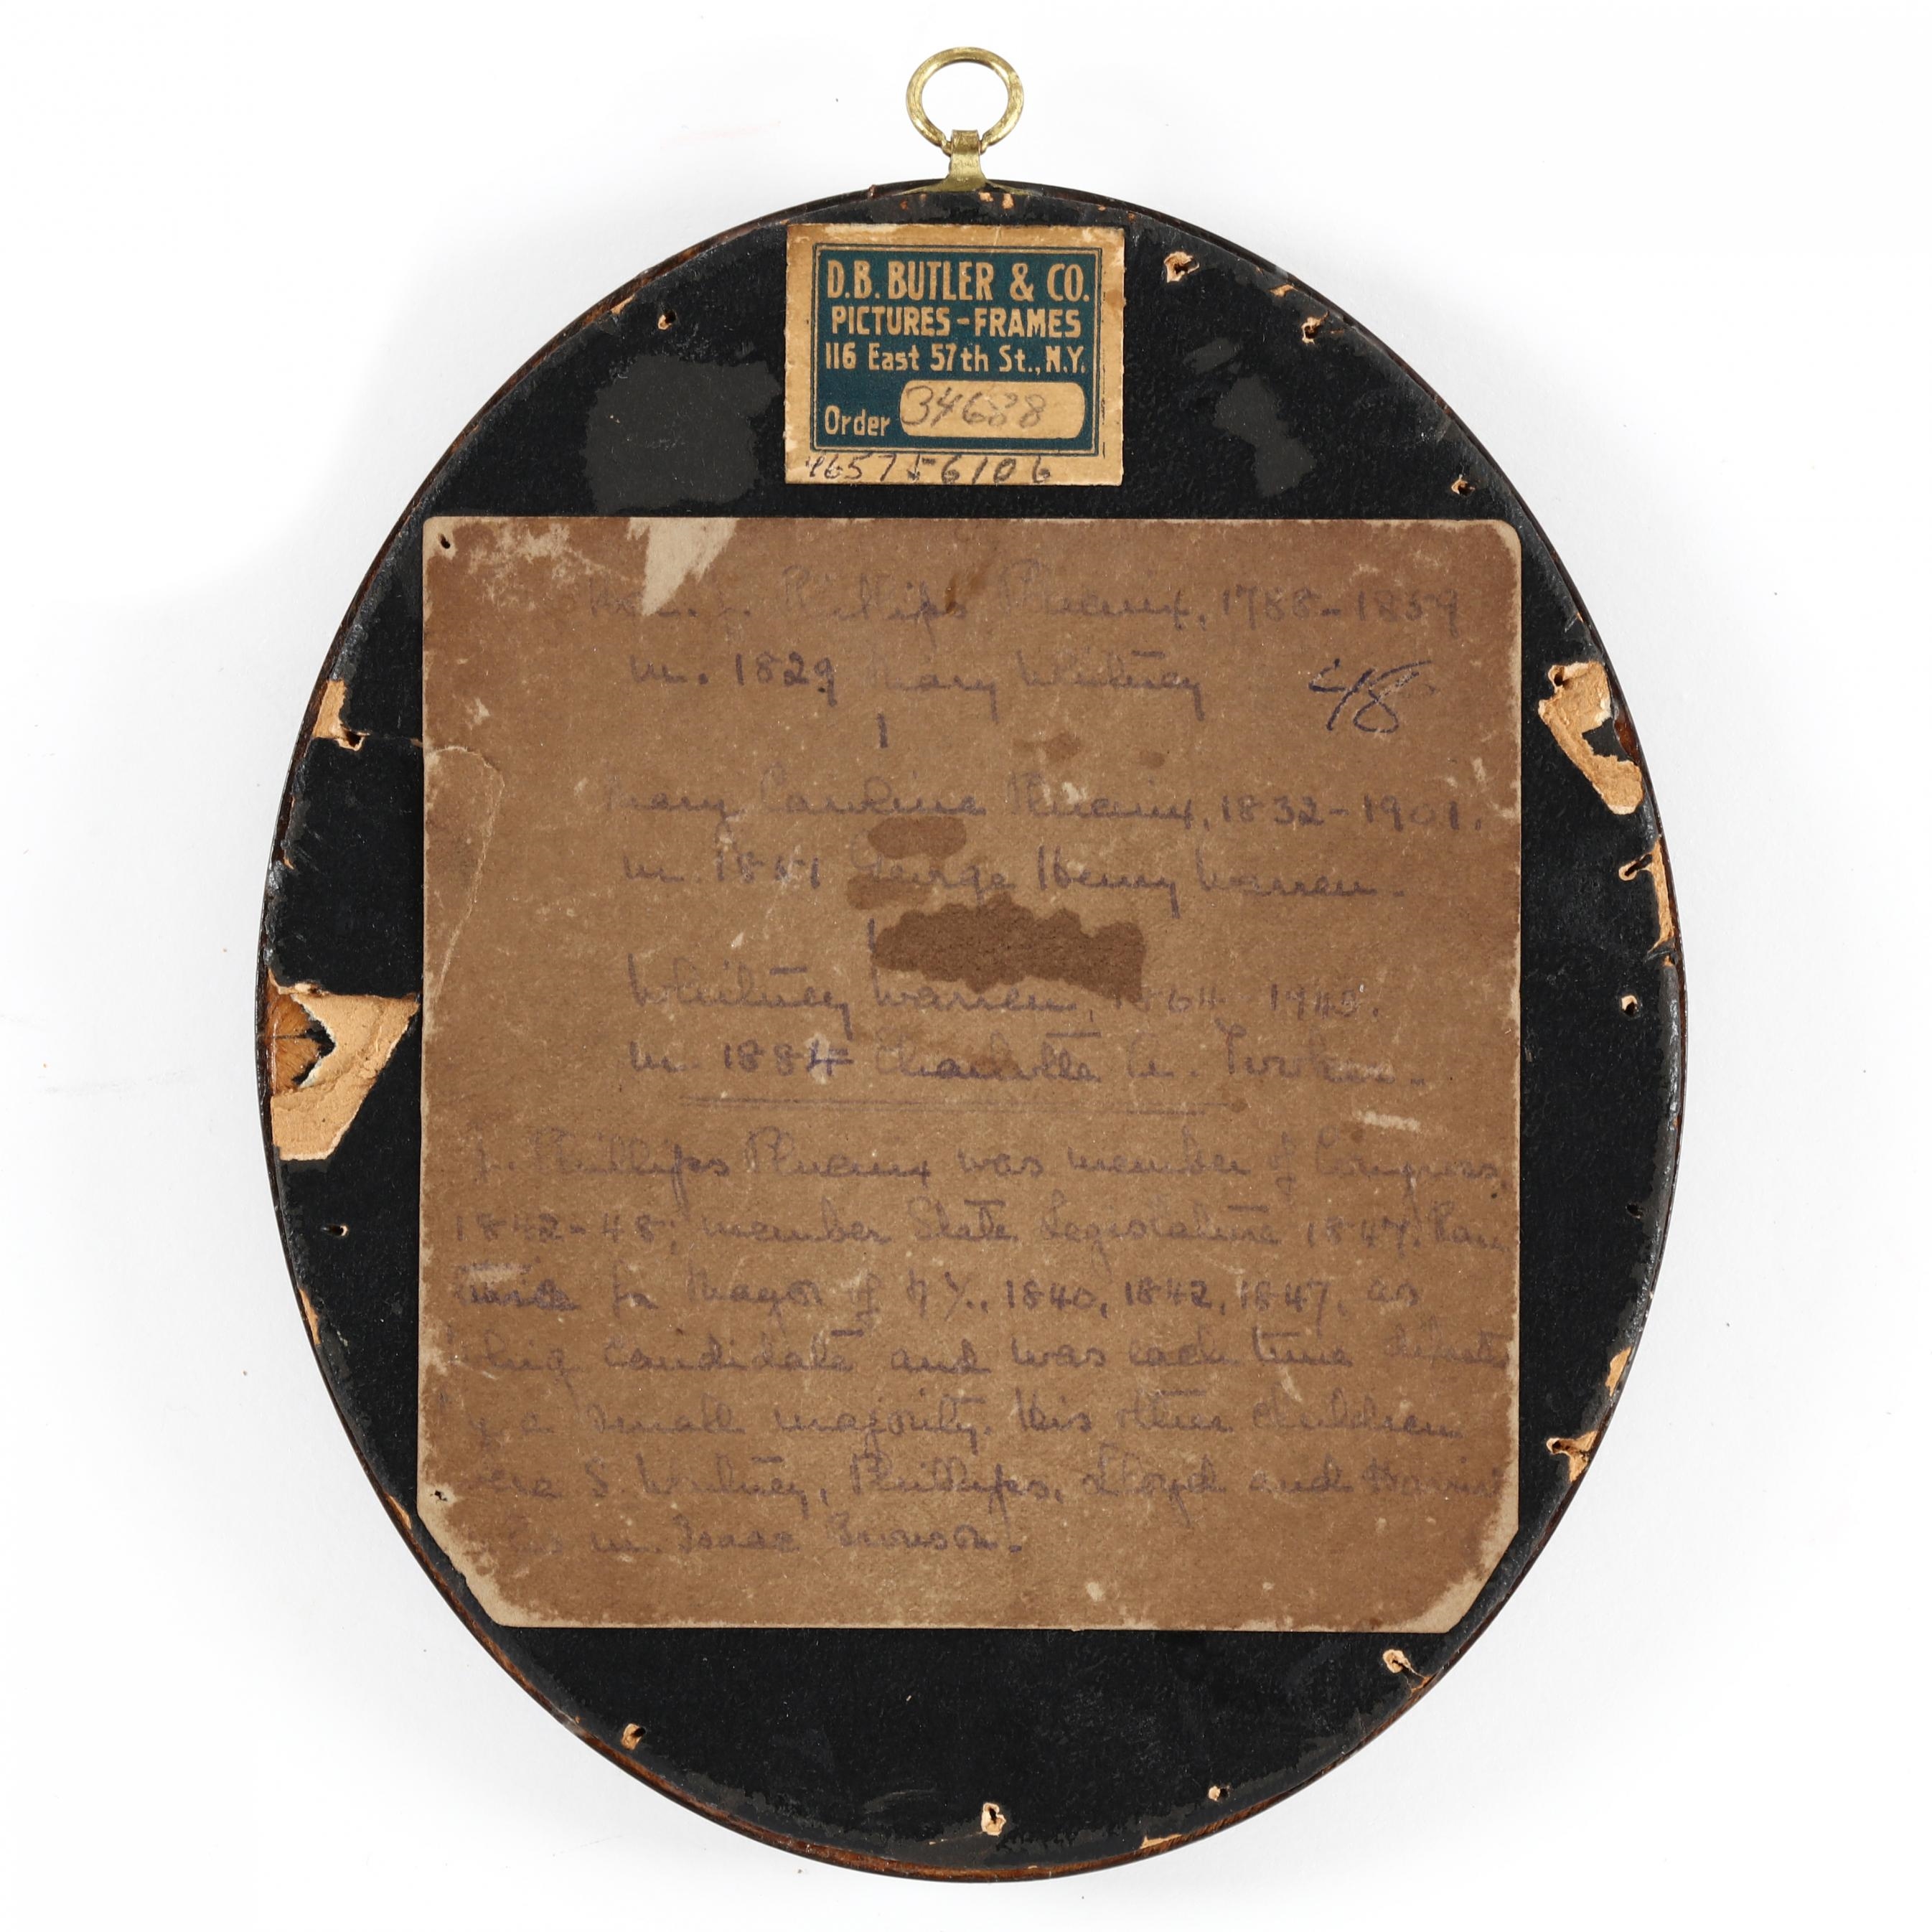 D.B. BUTLER & CO.
PICTURES-FRAMES
116 East 57th St., N.Y.
Order 34688
4657 56106
Hon. J. Phillips Phoenix, 1788-1859
m. 1829 Mary Whitney
48
Mary Caroline Phoenix, 1832-1901.
m. 1851 George Henry Warren.
Whitney Warren, 1864 1943.
m. 1884 Charlotte A. Tooker.
J. Phillips Phoenix was member of Congress,
1842-48; member State Legislature 1847. Ran
for Mayor of N.Y., 1840, 1842, 1847, as
Whig candidate and was each time defeated
by a small majority. His other children
were S. Whitney, Phillips, Lloyd and Harriet
m. Isaac Bronson.